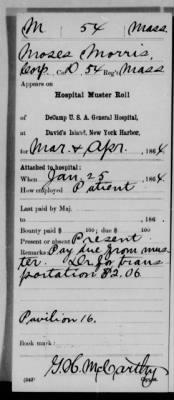 M 54 Mass.
Moses Morris,
Corp. Co. D, 54 Reg't Mass
Appears on
Hospital Muster Roll
of DeCamp U. S. A. General Hospital,
at David's Island, New York Harbor,
for Mar & Apr., 1864.
Attached to hospital:
When Jan. 25, 1864.
How employed Patient
Last paid by Maj.
to , 186 .
Bounty paid $ 100; due $ 100
Present or absent Present.
Remarks: Pay due from mus-
ter. Dr. for trans-
portation $2.06
Pavilion 16.
Book mark:
G. C. McCarthy
(343) Copyist.